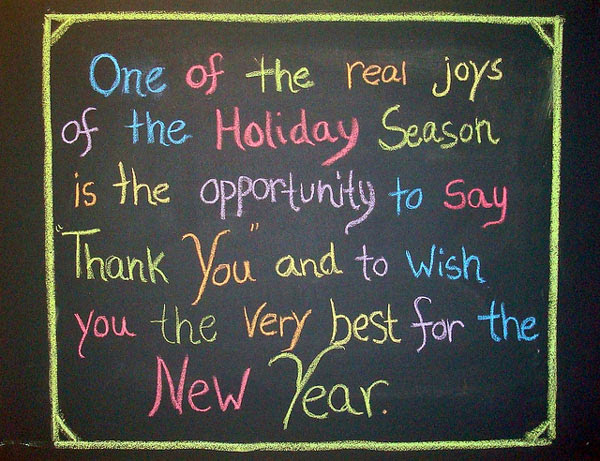 One of the real joys
of the Holiday Season
is the opportunity to say
"Thank You" and to wish
you the very best for the
New Year.